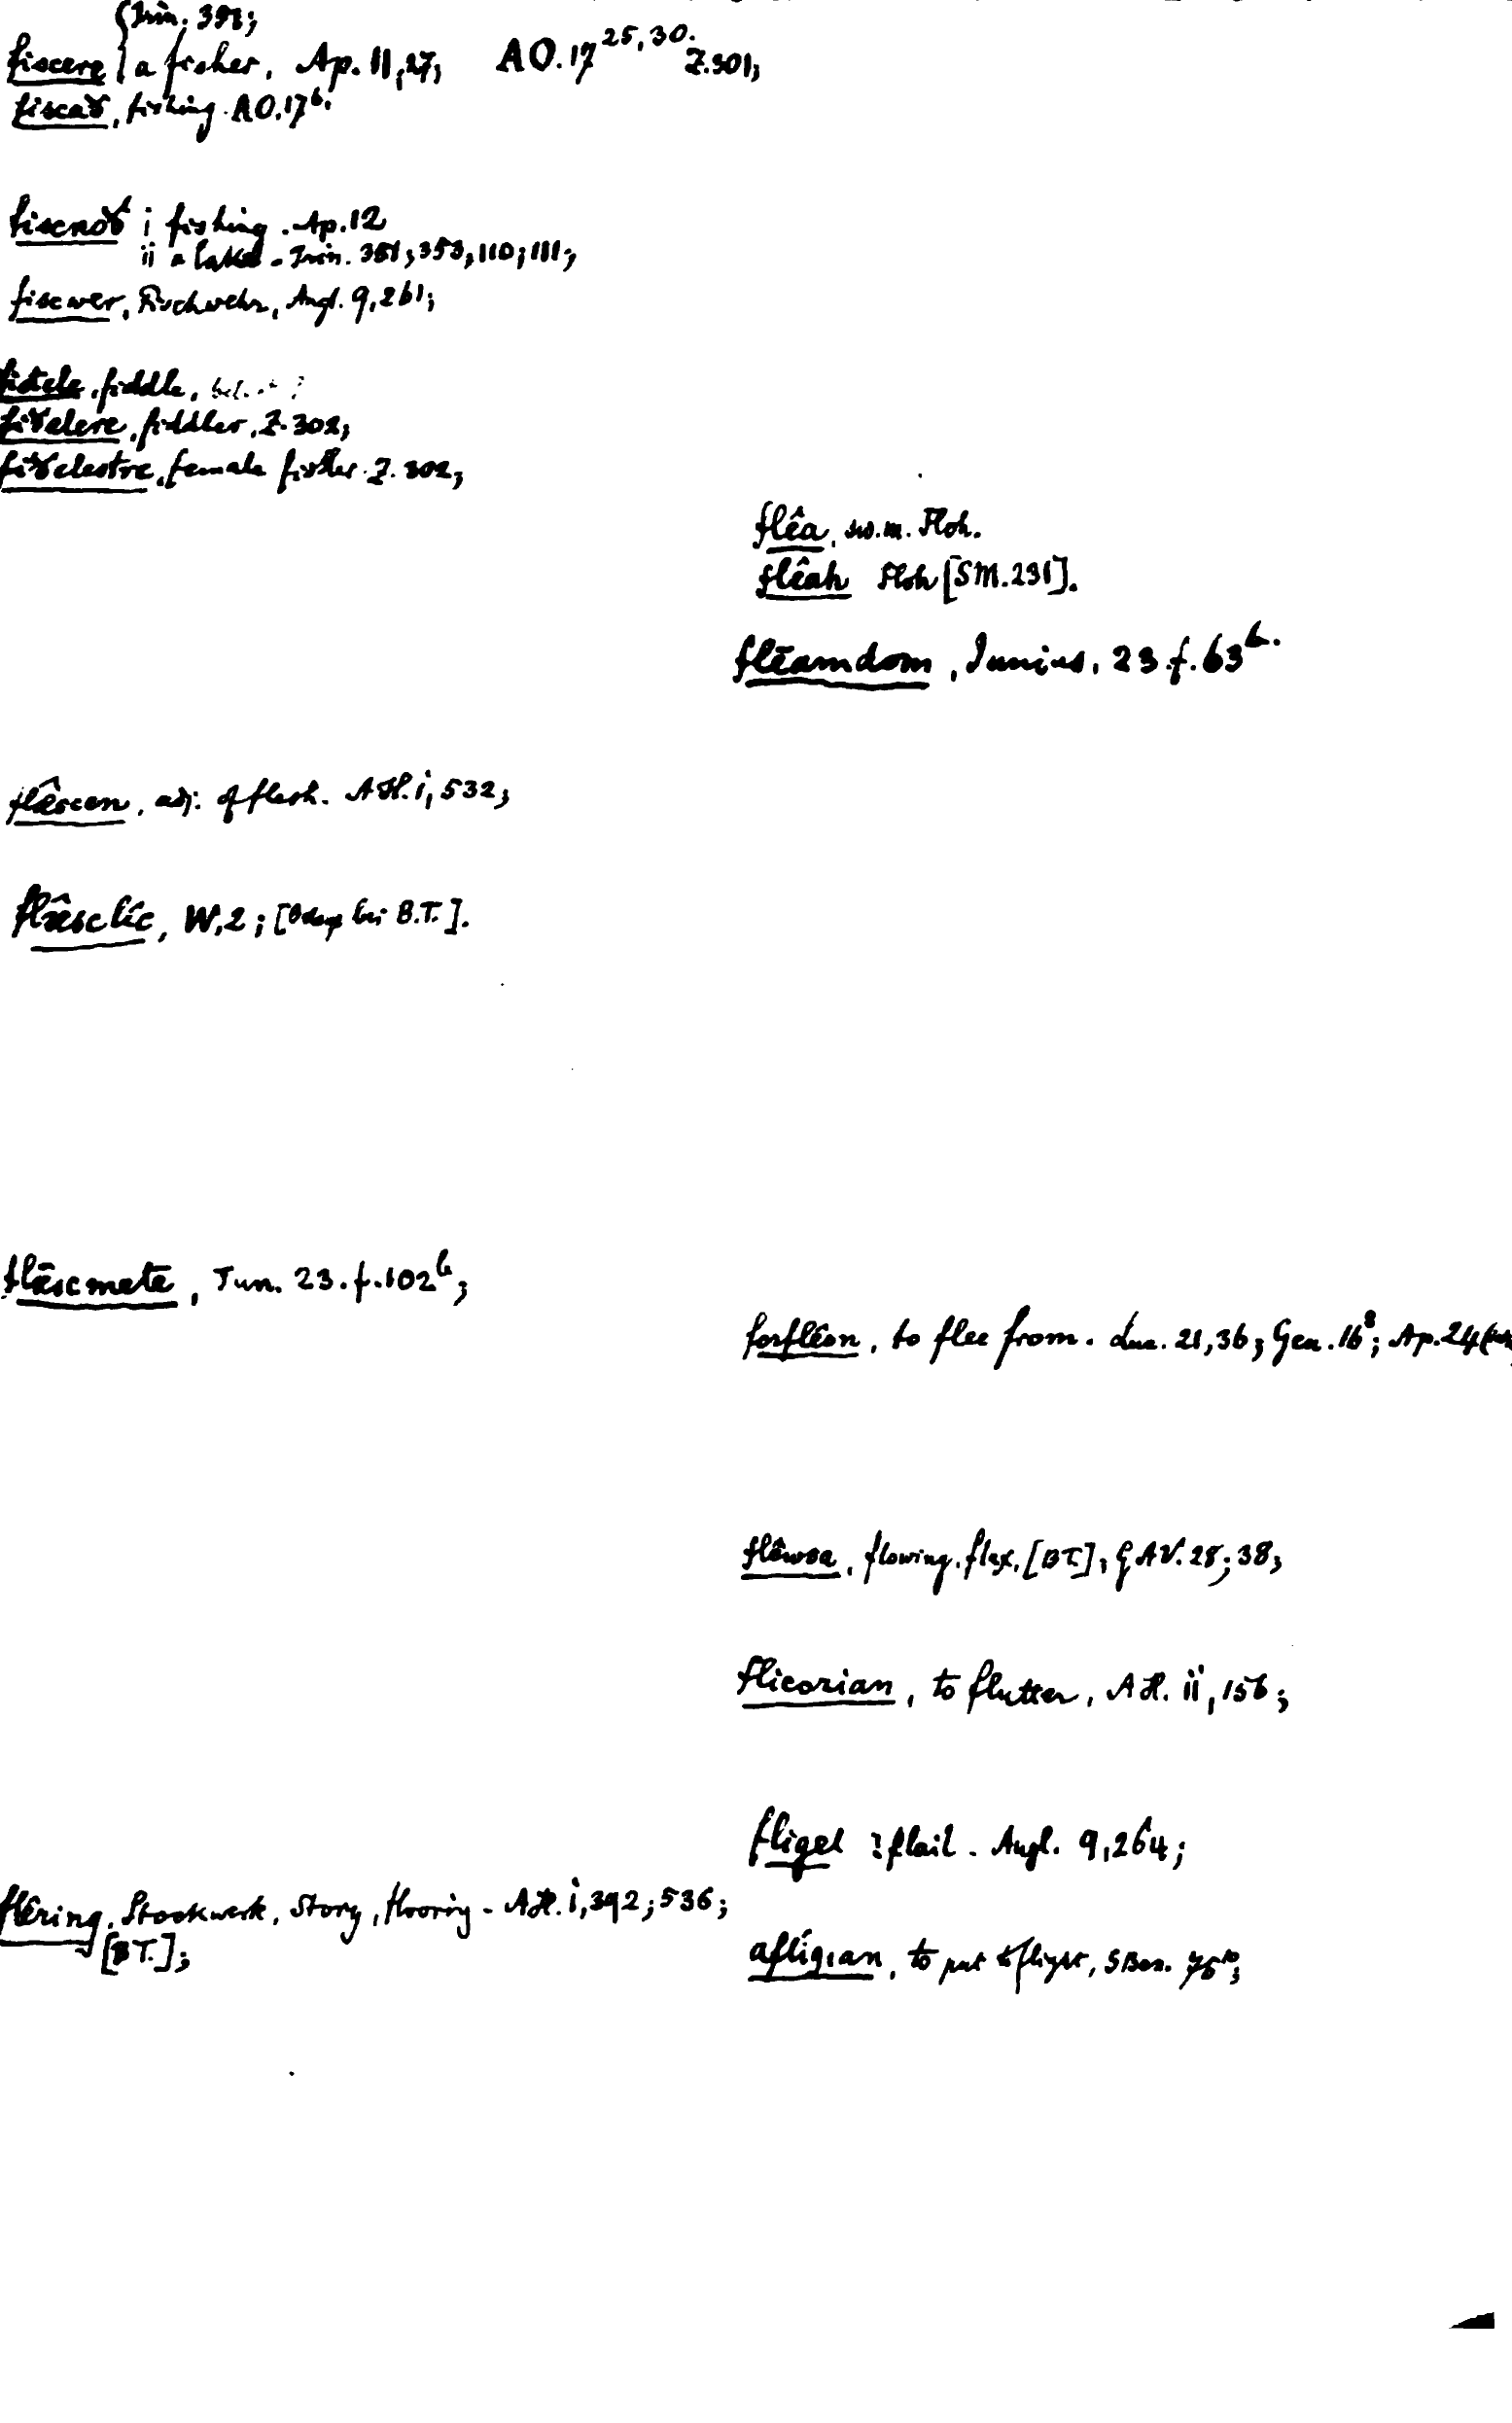 {Trin. 391;
fiscere {a fisher, Ap. 11,27; AO. 17 25,30. Z.301;
fiscað, fishing. AO.17 6.
fiscnoð i fishing. Ap.12
ii a lake - Trin. 351; 353, 110; 111;
fiscwer, Fischwehr, Angl. 9,261;
fiðele, fiddle,
fiðelere, fiddler, Z. 302;
fiðelestre, female fiddler. Z. 302;
flêa, sw.m. Floh.
flêah Floh [SM.291].
flēamdom, Junius, 23 f. 63 b.
flǣscen, adj. of flesh. AH. i, 532;
flǣsclíc, W,2; [bei B.T.].
flǣscmete, Jun. 23. f. 102 b;
forflêon, to flee from. Luc. 21,36; Gen. 16 8; Ap. 24
flêwsa, flowing, flux, [BT]; GAV. 28; 38;
flicorian, to flutter, AH. ii, 156;
fligel ? flail. Angl. 9,264;
flêring, Stockwerk, Story, flooring - AH. i, 392; 536;
[BT.];
aflígian, to put to flight, SBen. 75 10;